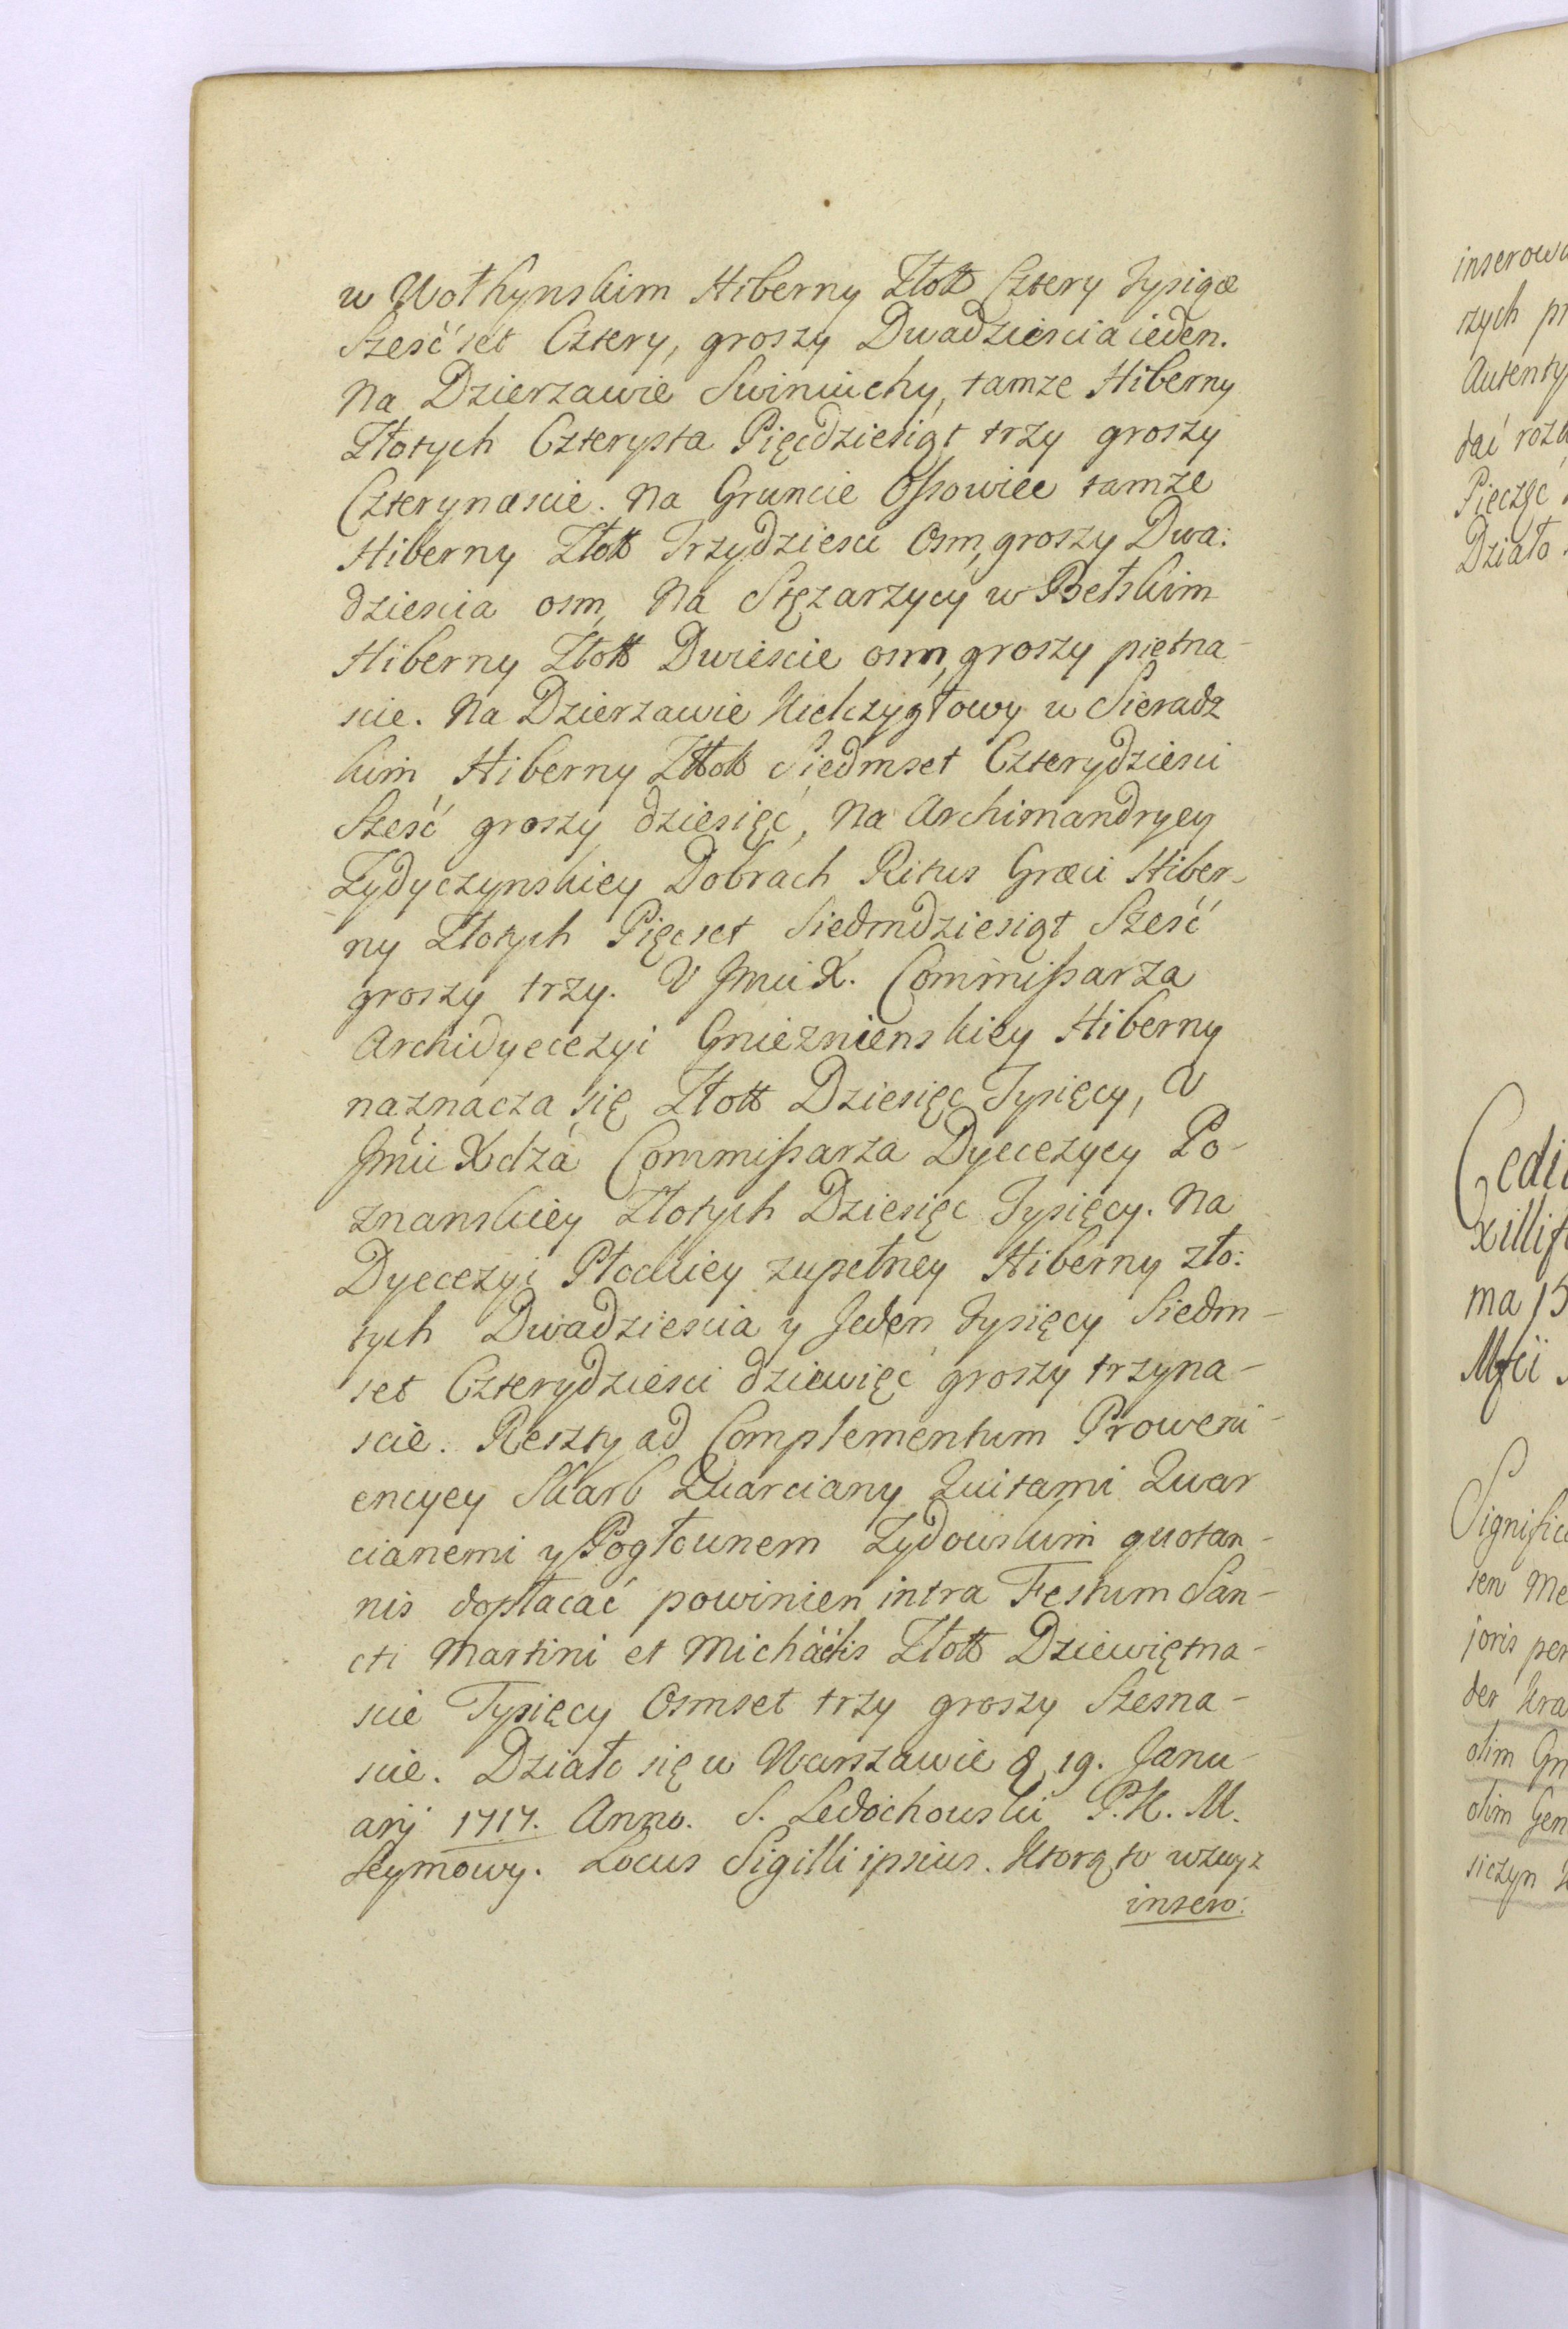 w Wołhynskim Hiberny Złott Cztery Tysiące
Sześć set Cztery, groszy Dwadziescia ieden.
Na Dzierzawie Swiniuchy, tamze Hiberny
Złotych Czterysta Pięcdziesiąt trzy groszy
Czterynascie. Na Gruncie Ossowiec tamze
Hiberny Złott Trzydziesci Osm, groszy Dwa:
dziescia osm, Na Stęzarzycy w Bełskim
Hiberny Złott Dwiescie osm, groszy piętna-
scie. Na Dzierzawie Kiełczygłowy w Sieradz
kim Hiberny Złłott Siedmset Czterydziesci
Sześć groszy dziesięć, Na Archimandryey
Zydyczynskiey Dobrach Ritus Græci Hiber-
ny Złotych Pięcset Siedmdziesiąt Sześć
groszy trzy. U Jmci X. Commissarza
Archidyecezyi Gnieznienskiey Hiberny
naznacza się Złott Dziesięc Tysięcy, U
Jmci Xdza Commissarza Dyecezyey Po-
znanskiey Złotych Dziesięc Tysięcy. Na
Dyecezyi Płockiey zupełney Hiberny zło:
tych Dwadziescia y Jeden tysięcy Siedm-
set Czterydziesci dziewięć groszy trzyna-
scie. Reszty ad Complementum Proweni-
encyey Skarb Quarciany Quitami Quar
cianemi y Pogłownem Zydowskim quotan-
nis dopłacać powinien intra Festum San-
cti Martini et Michaelis Złott Dziewiętna-
scie Tysięcy Osmset trzy groszy Szesna-
scie. Działo się w Warszawie d 19. Janu-
arij 1717. Anno. S. Ledochowski P. K. M.
Seymowy. Locus Sigilli ipsius. Ktorą to wzwyz
insero:
inserowa
szych pr
Autenty
dać rozk
Pieczęć
Działo
Cedi
xillif
ma 15
Mści
Significa
sen Me
joris per
der Kra
olim Gn
olim Gen
siczyn